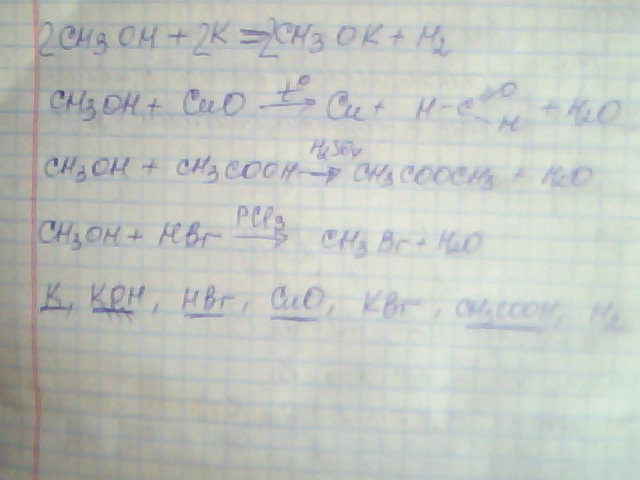 2CH3OH + 2K = 2CH3OK + H2
CH3OH + CuO t° → Cu + H-C=O-H + H2O
CH3OH + CH3COOH H2SO4 → CH3COOCH3 + H2O
CH3OH + HBr PCl3 → CH3Br + H2O
K, KOH, HBr, CuO, KBr, CH3COOH, H2